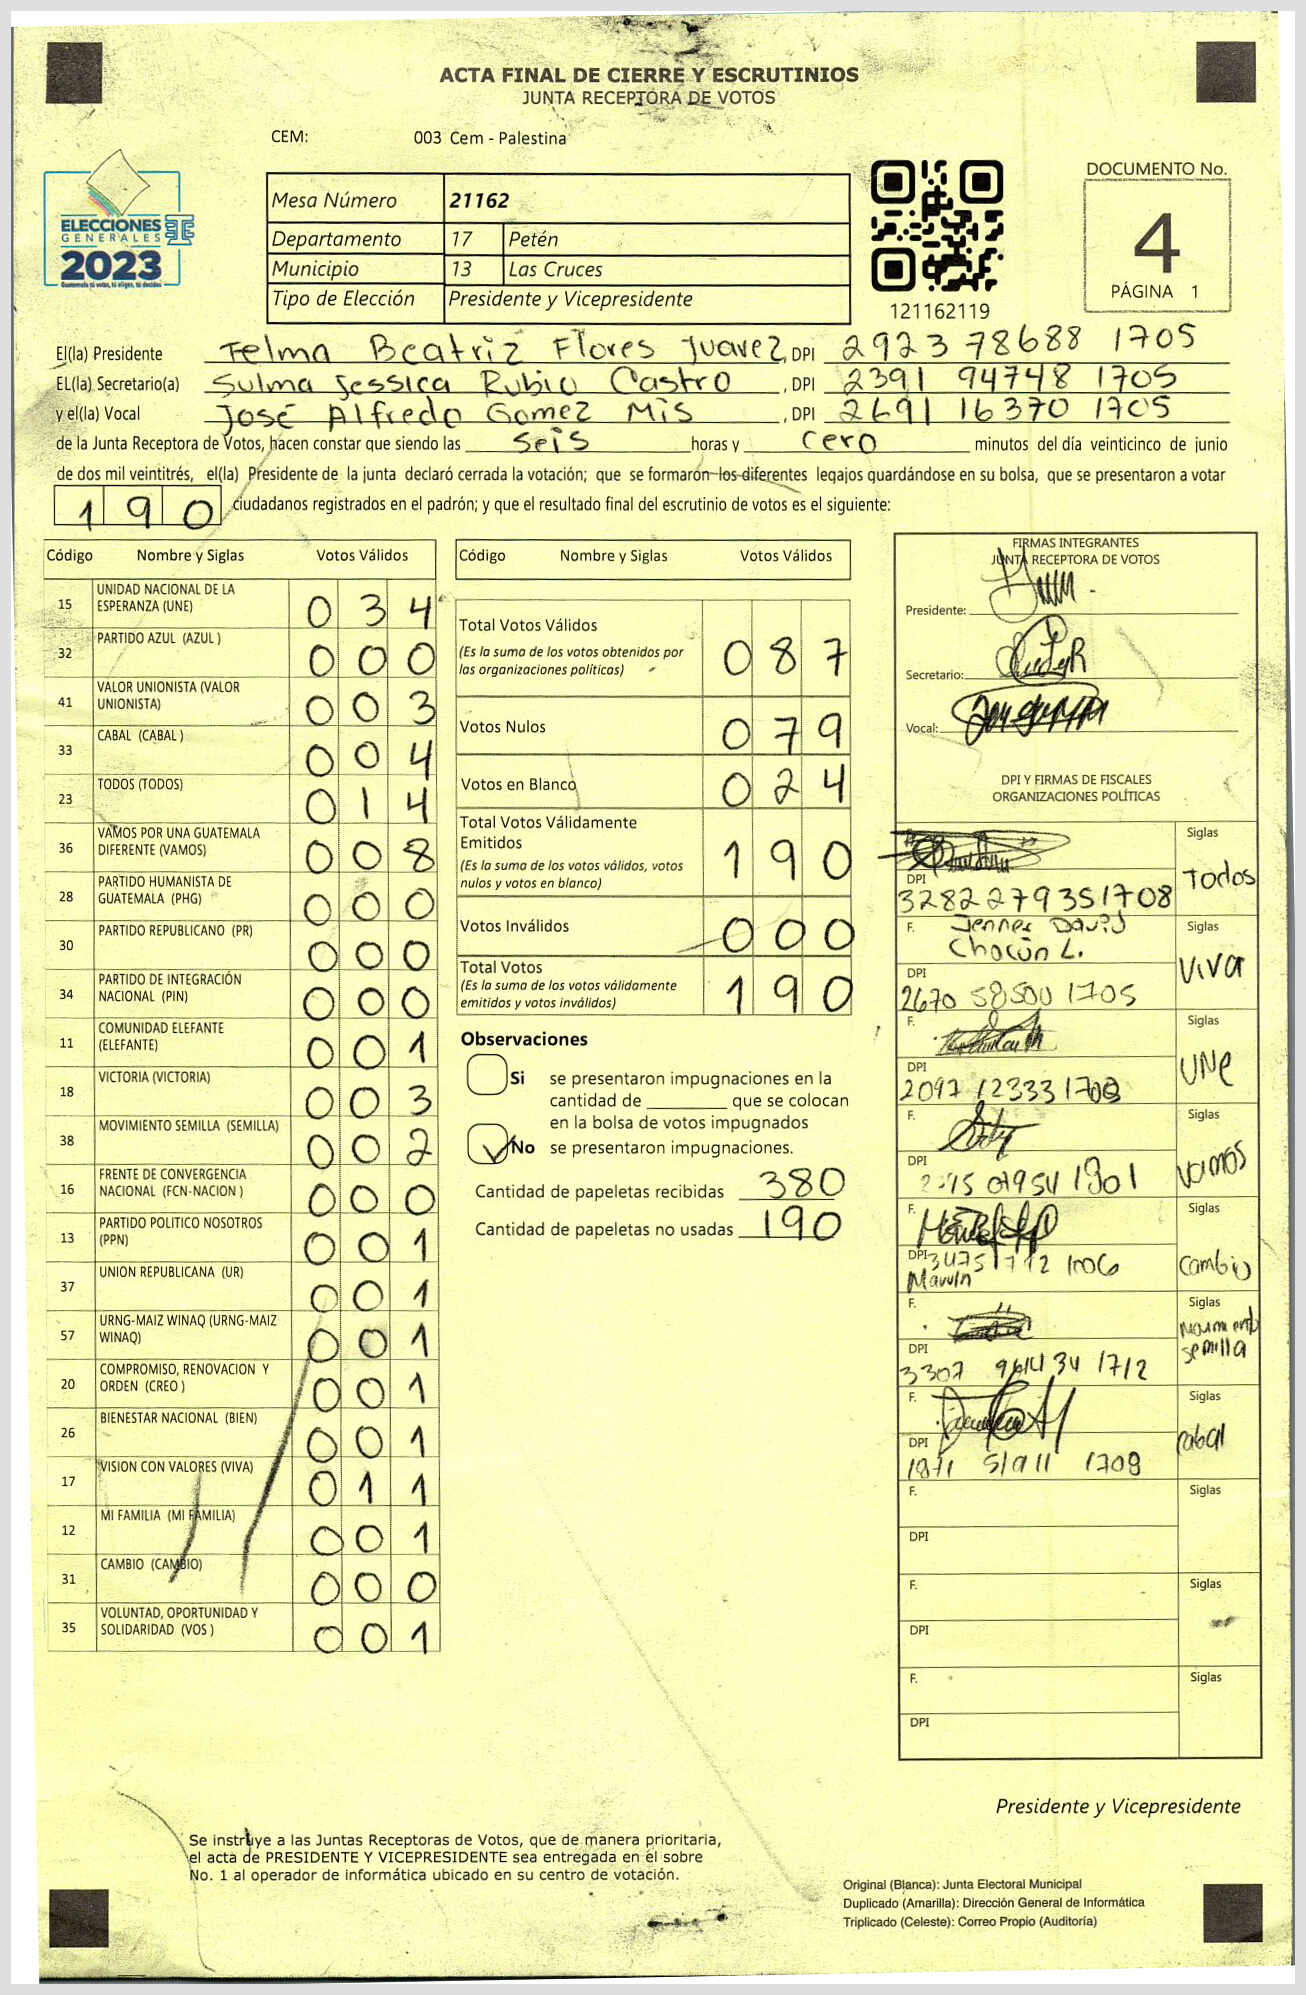 ACTA FINAL DE CIERRE Y ESCRUTINIOS
JUNTA RECEPTORA DE VOTOS
CEM: 003 Cem - Palestina
ELECCIONES
GENERALES
2023
Guatemala tú votas, tú eliges, tú decides
Mesa Número 21162
Departamento 17 Petén
Municipio 13 Las Cruces
Tipo de Elección Presidente y Vicepresidente
121162119
DOCUMENTO No.
4
PÁGINA 1
El(la) Presidente Telma Beatriz Flores Juarez, DPI 2923 78688 1705
EL(la) Secretario(a) Sulma Jessica Rubio Castro, DPI 2391 94748 1705
y el(la) Vocal José Alfredo Gomez Mis, DPI 2691 16370 1705
de la Junta Receptora de Votos, hacen constar que siendo las seis horas y cero minutos del día veinticinco de junio
de dos mil veintitrés, el(la) Presidente de la junta declaró cerrada la votación; que se formaron los diferentes legajos quardándose en su bolsa, que se presentaron a votar
190 ciudadanos registrados en el padrón; y que el resultado final del escrutinio de votos es el siguiente:
Código Nombre y Siglas Votos Válidos
15 UNIDAD NACIONAL DE LA ESPERANZA (UNE) 034
32 PARTIDO AZUL (AZUL ) 000
41 VALOR UNIONISTA (VALOR UNIONISTA) 003
33 CABAL (CABAL ) 004
23 TODOS (TODOS) 014
36 VAMOS POR UNA GUATEMALA DIFERENTE (VAMOS) 008
28 PARTIDO HUMANISTA DE GUATEMALA (PHG) 000
30 PARTIDO REPUBLICANO (PR) 000
34 PARTIDO DE INTEGRACIÓN NACIONAL (PIN) 000
11 COMUNIDAD ELEFANTE (ELEFANTE) 001
18 VICTORIA (VICTORIA) 003
38 MOVIMIENTO SEMILLA (SEMILLA) 002
16 FRENTE DE CONVERGENCIA NACIONAL (FCN-NACION ) 000
13 PARTIDO POLITICO NOSOTROS (PPN) 001
37 UNION REPUBLICANA (UR) 001
57 URNG-MAIZ WINAQ (URNG-MAIZ WINAQ) 001
20 COMPROMISO, RENOVACION Y ORDEN (CREO ) 001
26 BIENESTAR NACIONAL (BIEN) 001
17 VISION CON VALORES (VIVA) 011
12 MI FAMILIA (MI FAMILIA) 001
31 CAMBIO (CAMBIO) 000
35 VOLUNTAD, OPORTUNIDAD Y SOLIDARIDAD (VOS ) 001
Código Nombre y Siglas Votos Válidos
Total Votos Válidos 087
(Es la suma de los votos obtenidos por
las organizaciones políticas)
Votos Nulos 079
Votos en Blanco 024
Total Votos Válidamente
Emitidos 190
(Es la suma de los votos válidos, votos
nulos y votos en blanco)
Votos Inválidos 000
Total Votos 190
(Es la suma de los votos válidamente
emitidos y votos inválidos)
Observaciones
Si se presentaron impugnaciones en la
cantidad de ________ que se colocan
en la bolsa de votos impugnados
No se presentaron impugnaciones.
Cantidad de papeletas recibidas 380
Cantidad de papeletas no usadas 190
FIRMAS INTEGRANTES
JUNTA RECEPTORA DE VOTOS
Presidente:
Secretario:
Vocal:
DPI Y FIRMAS DE FISCALES
ORGANIZACIONES POLÍTICAS
Siglas Todos
DPI
3282279351708
F. Jenner David
Chacón L.
Siglas Viva
DPI
2670 58500 1705
F.
Siglas UNe
DPI
2097 12333
F.
Siglas vamos
DPI
F.
Siglas Cambio
DPI
Marvin
F.
Siglas Movimiento
semilla
DPI
3307 1712
F.
Siglas cabal
DPI
F.
Siglas
DPI
F.
Siglas
DPI
F.
Siglas
DPI
Presidente y Vicepresidente
Se instruye a las Juntas Receptoras de Votos, que de manera prioritaria,
el acta de PRESIDENTE Y VICEPRESIDENTE sea entregada en el sobre
No. 1 al operador de informática ubicado en su centro de votación.
Original (Blanca): Junta Electoral Municipal
Duplicado (Amarilla): Dirección General de Informática
Triplicado (Celeste): Correo Propio (Auditoría)